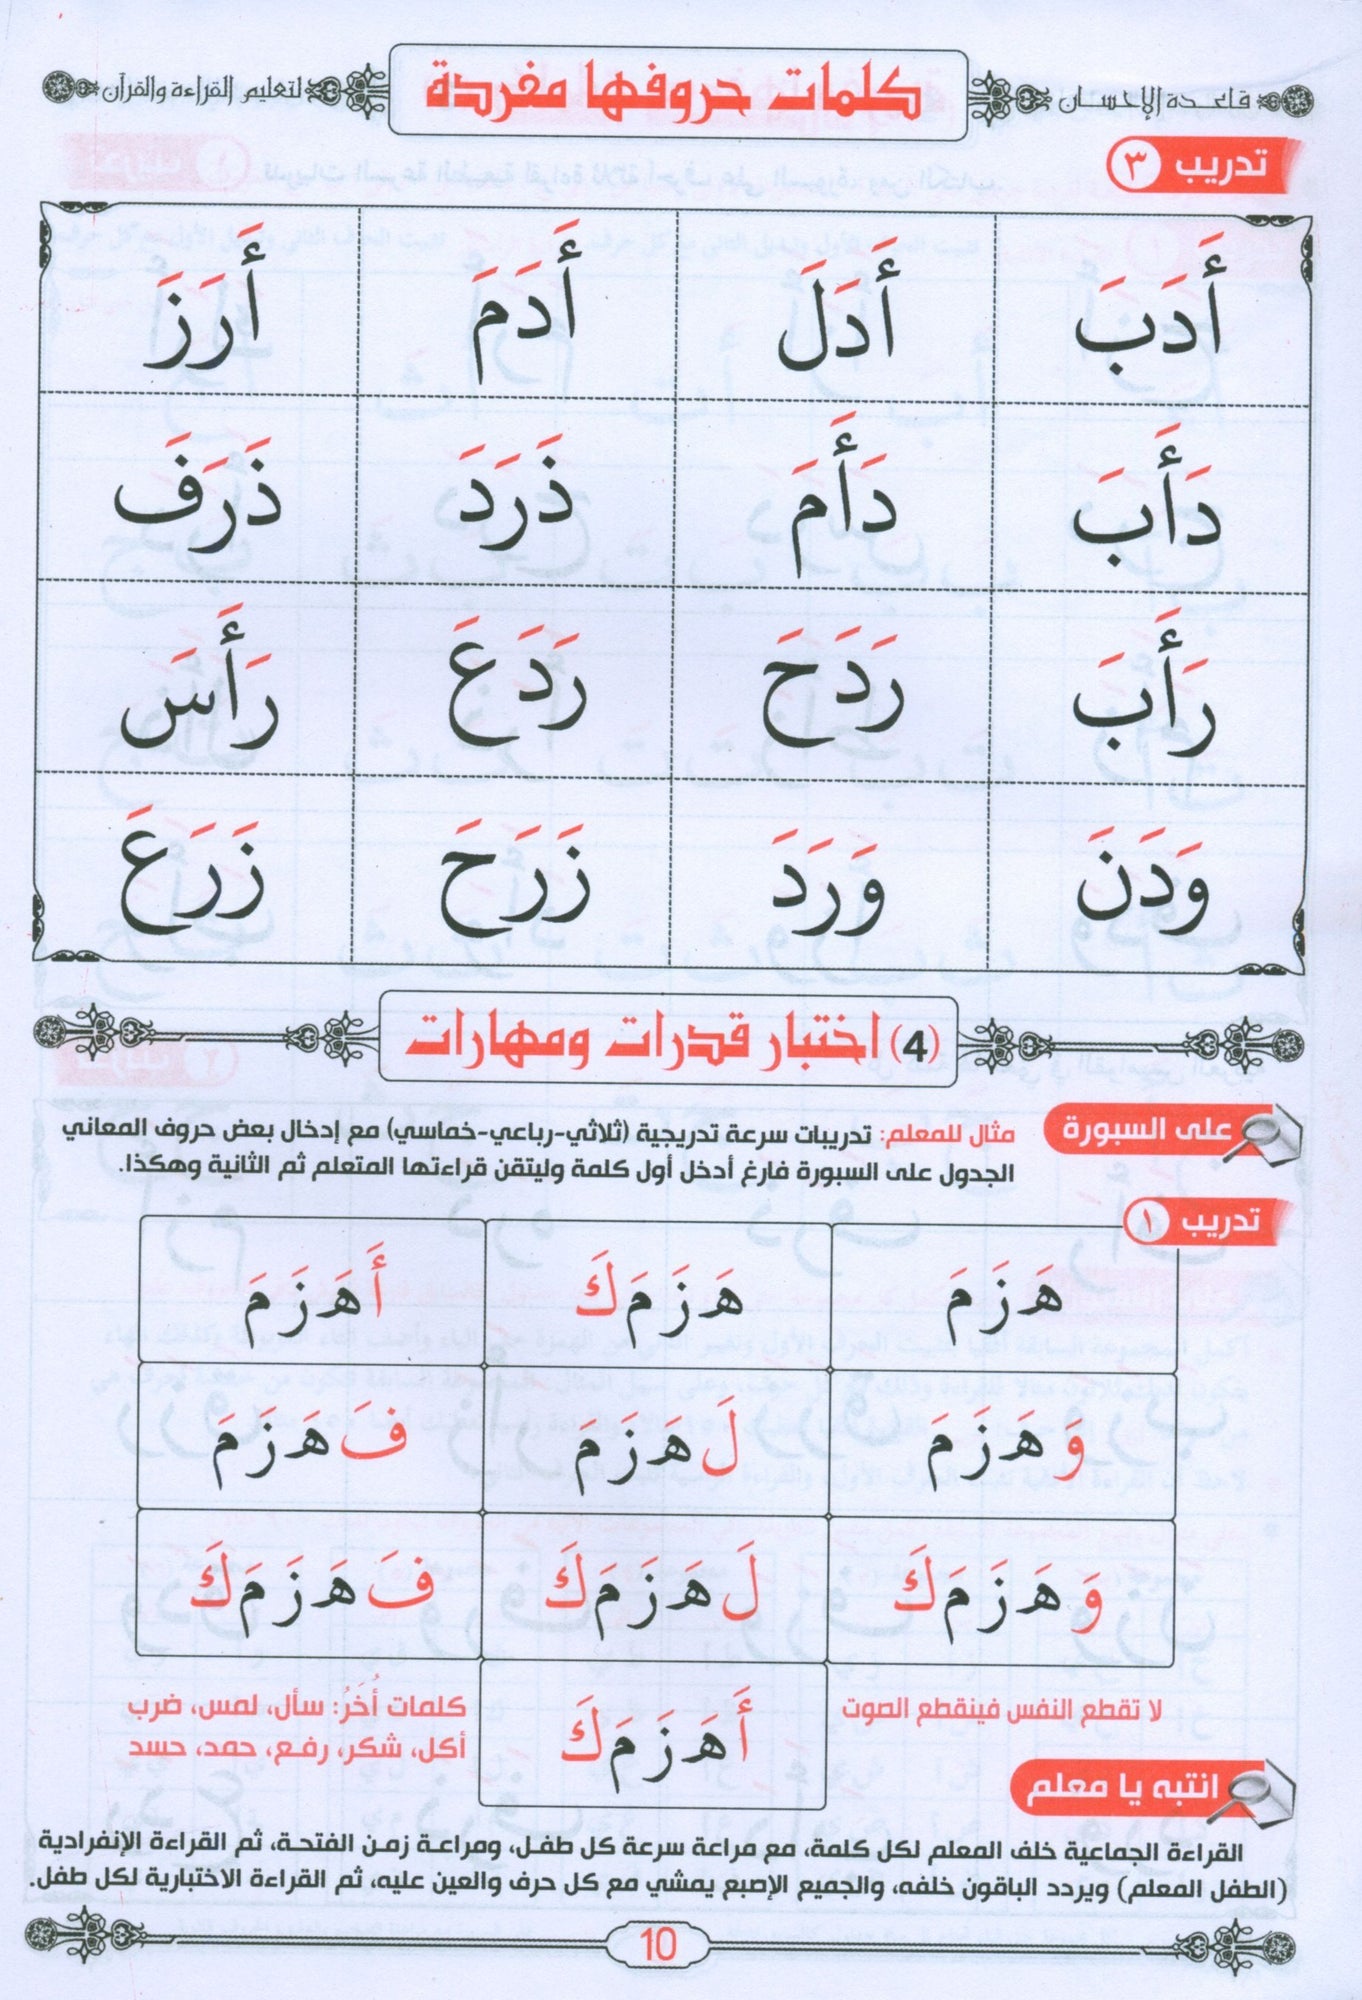 قاعدة الإحسان
كلمات حروفها مفردة
لتعليم القراءة والقرآن
تدريب ٣
أَدَبَ أَدَلَ أَدَمَ أَرَزَ
دَأَبَ دَأَمَ ذَرَدَ ذَرَفَ
رَأَبَ رَدَحَ رَدَعَ رَأَسَ
وَدَنَ وَرَدَ زَرَحَ زَرَعَ
(4) اختبار قدرات ومهارات
على السبورة
مثال للمعلم: تدريبات سرعة تدريجية (ثلاثي-رباعي-خماسي) مع إدخال بعض حروف المعاني
الجدول على السبورة فارغ أدخل أول كلمة وليتقن قراءتها المتعلم ثم الثانية وهكذا.
تدريب ١
هَزَمَ هَزَمَكَ أَهَزَمَ
وَهَزَمَ لَهَزَمَ فَهَزَمَ
وَهَزَمَكَ لَهَزَمَكَ فَهَزَمَكَ
أَهَزَمَكَ
لا تقطع النفس فينقطع الصوت
كلمات أُخَرُ: سأل، لمس، ضرب
أكل، شكر، رفع، حمد، حسد
انتبه يا معلم
القراءة الجماعية خلف المعلم لكل كلمة، مع مراعة سرعة كل طفل، ومراعة زمن الفتحة، ثم القراءة الإنفرادية
(الطفل المعلم) ويردد الباقون خلفه، والجميع الإصبع يمشي مع كل حرف والعين عليه، ثم القراءة الاختبارية لكل طفل.
10